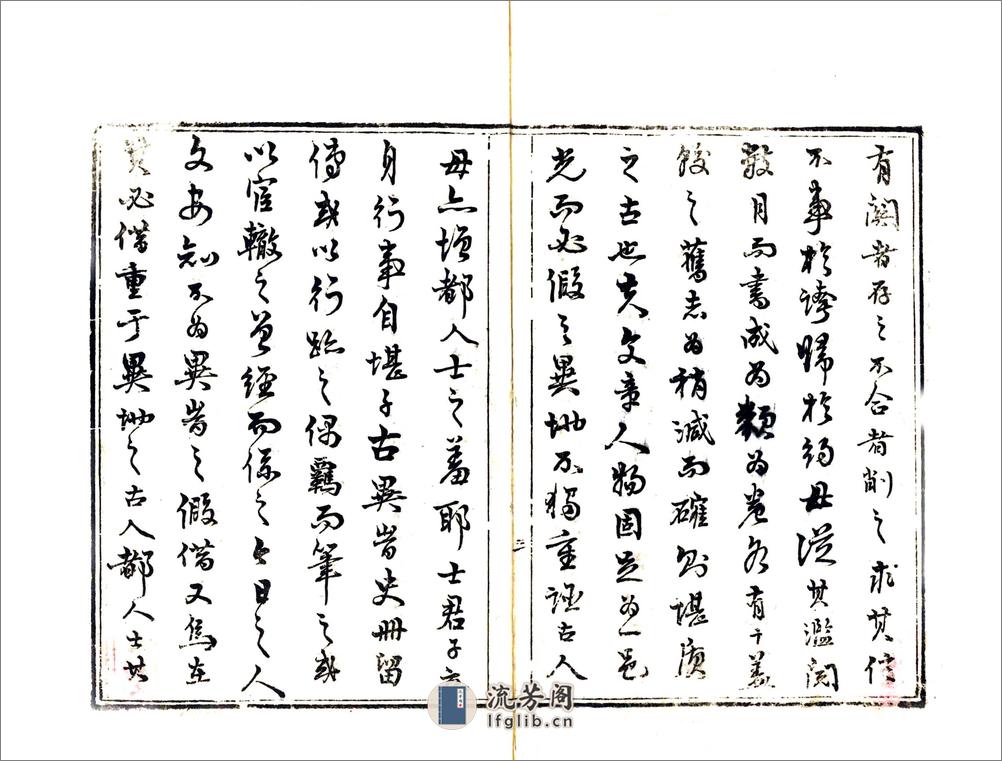 有関者存之不合者削之求其信
不事於誇歸於約毋從其濫閱
數月而書成為類為卷各有干義
較之舊志為稍減而確則堪質
之古也夫文章人物固足為一邑
光而必假之異地不獨重誣古人
三
毋亦增都人士之羞耶士君子立
身行事自堪千古異時史冊留
傳或以行跡之偶羈而筆之或
以宦轍之曾經而係之今日之人
文安知不為異時之假借又焉在
其必借重于異地之古人都人士其
流芳阁
lfglib.cn